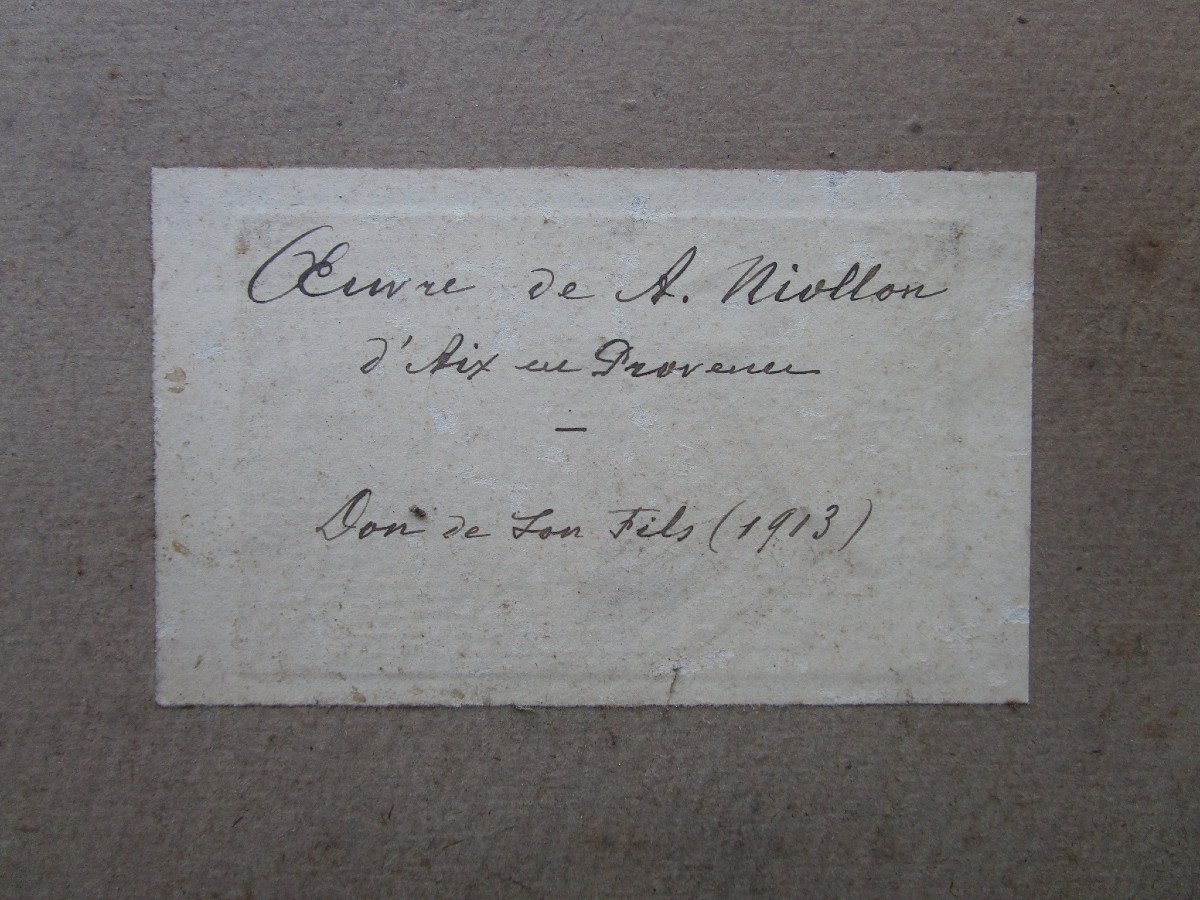 Œuvre de A. Niollon
d'Aix en Provence
—
Don de Son Fils (1913)